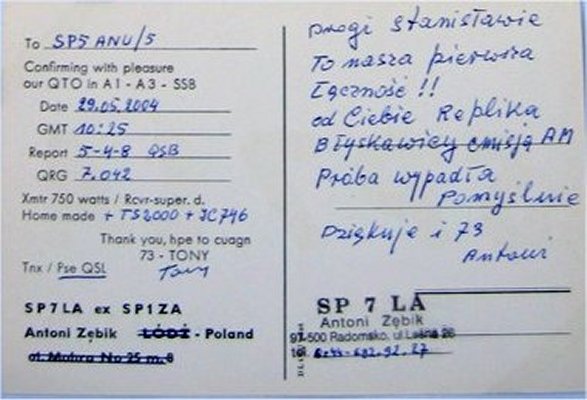 To SP5ANU/5
Confirming with pleasure
our QTO in A1 - A3 - SSB
Date 29.05.2004
GMT 10:25
Report 5-4-8 QSB
QRG 7.042
Xmtr 750 watts / Rcvr-super. d.
Home made + TS2000 + IC746
Thank you, hpe to cuagn
73 - TONY
Tnx / Pse QSL Tony
SP7LA ex SP1ZA
Antoni Zębik ŁÓDŹ - Poland
Drogi Stanisławie
To nasza pierwsza
Łączność !!
od Ciebie Replika
Błyskawicy emisją AM
Próba wypadła
Pomyślnie
Dziękuję i 73
Antoni
SP 7 LA
Antoni Zębik
97-500 Radomsko, ul. Leśna
tel.